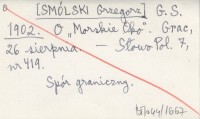 [SMÓLSKI Grzegorz] G.S.
1902. O „Morskie Oko". Grac,
26 sierpnia. — Słowo Pol. 7,
nr 419.
Spór graniczny.